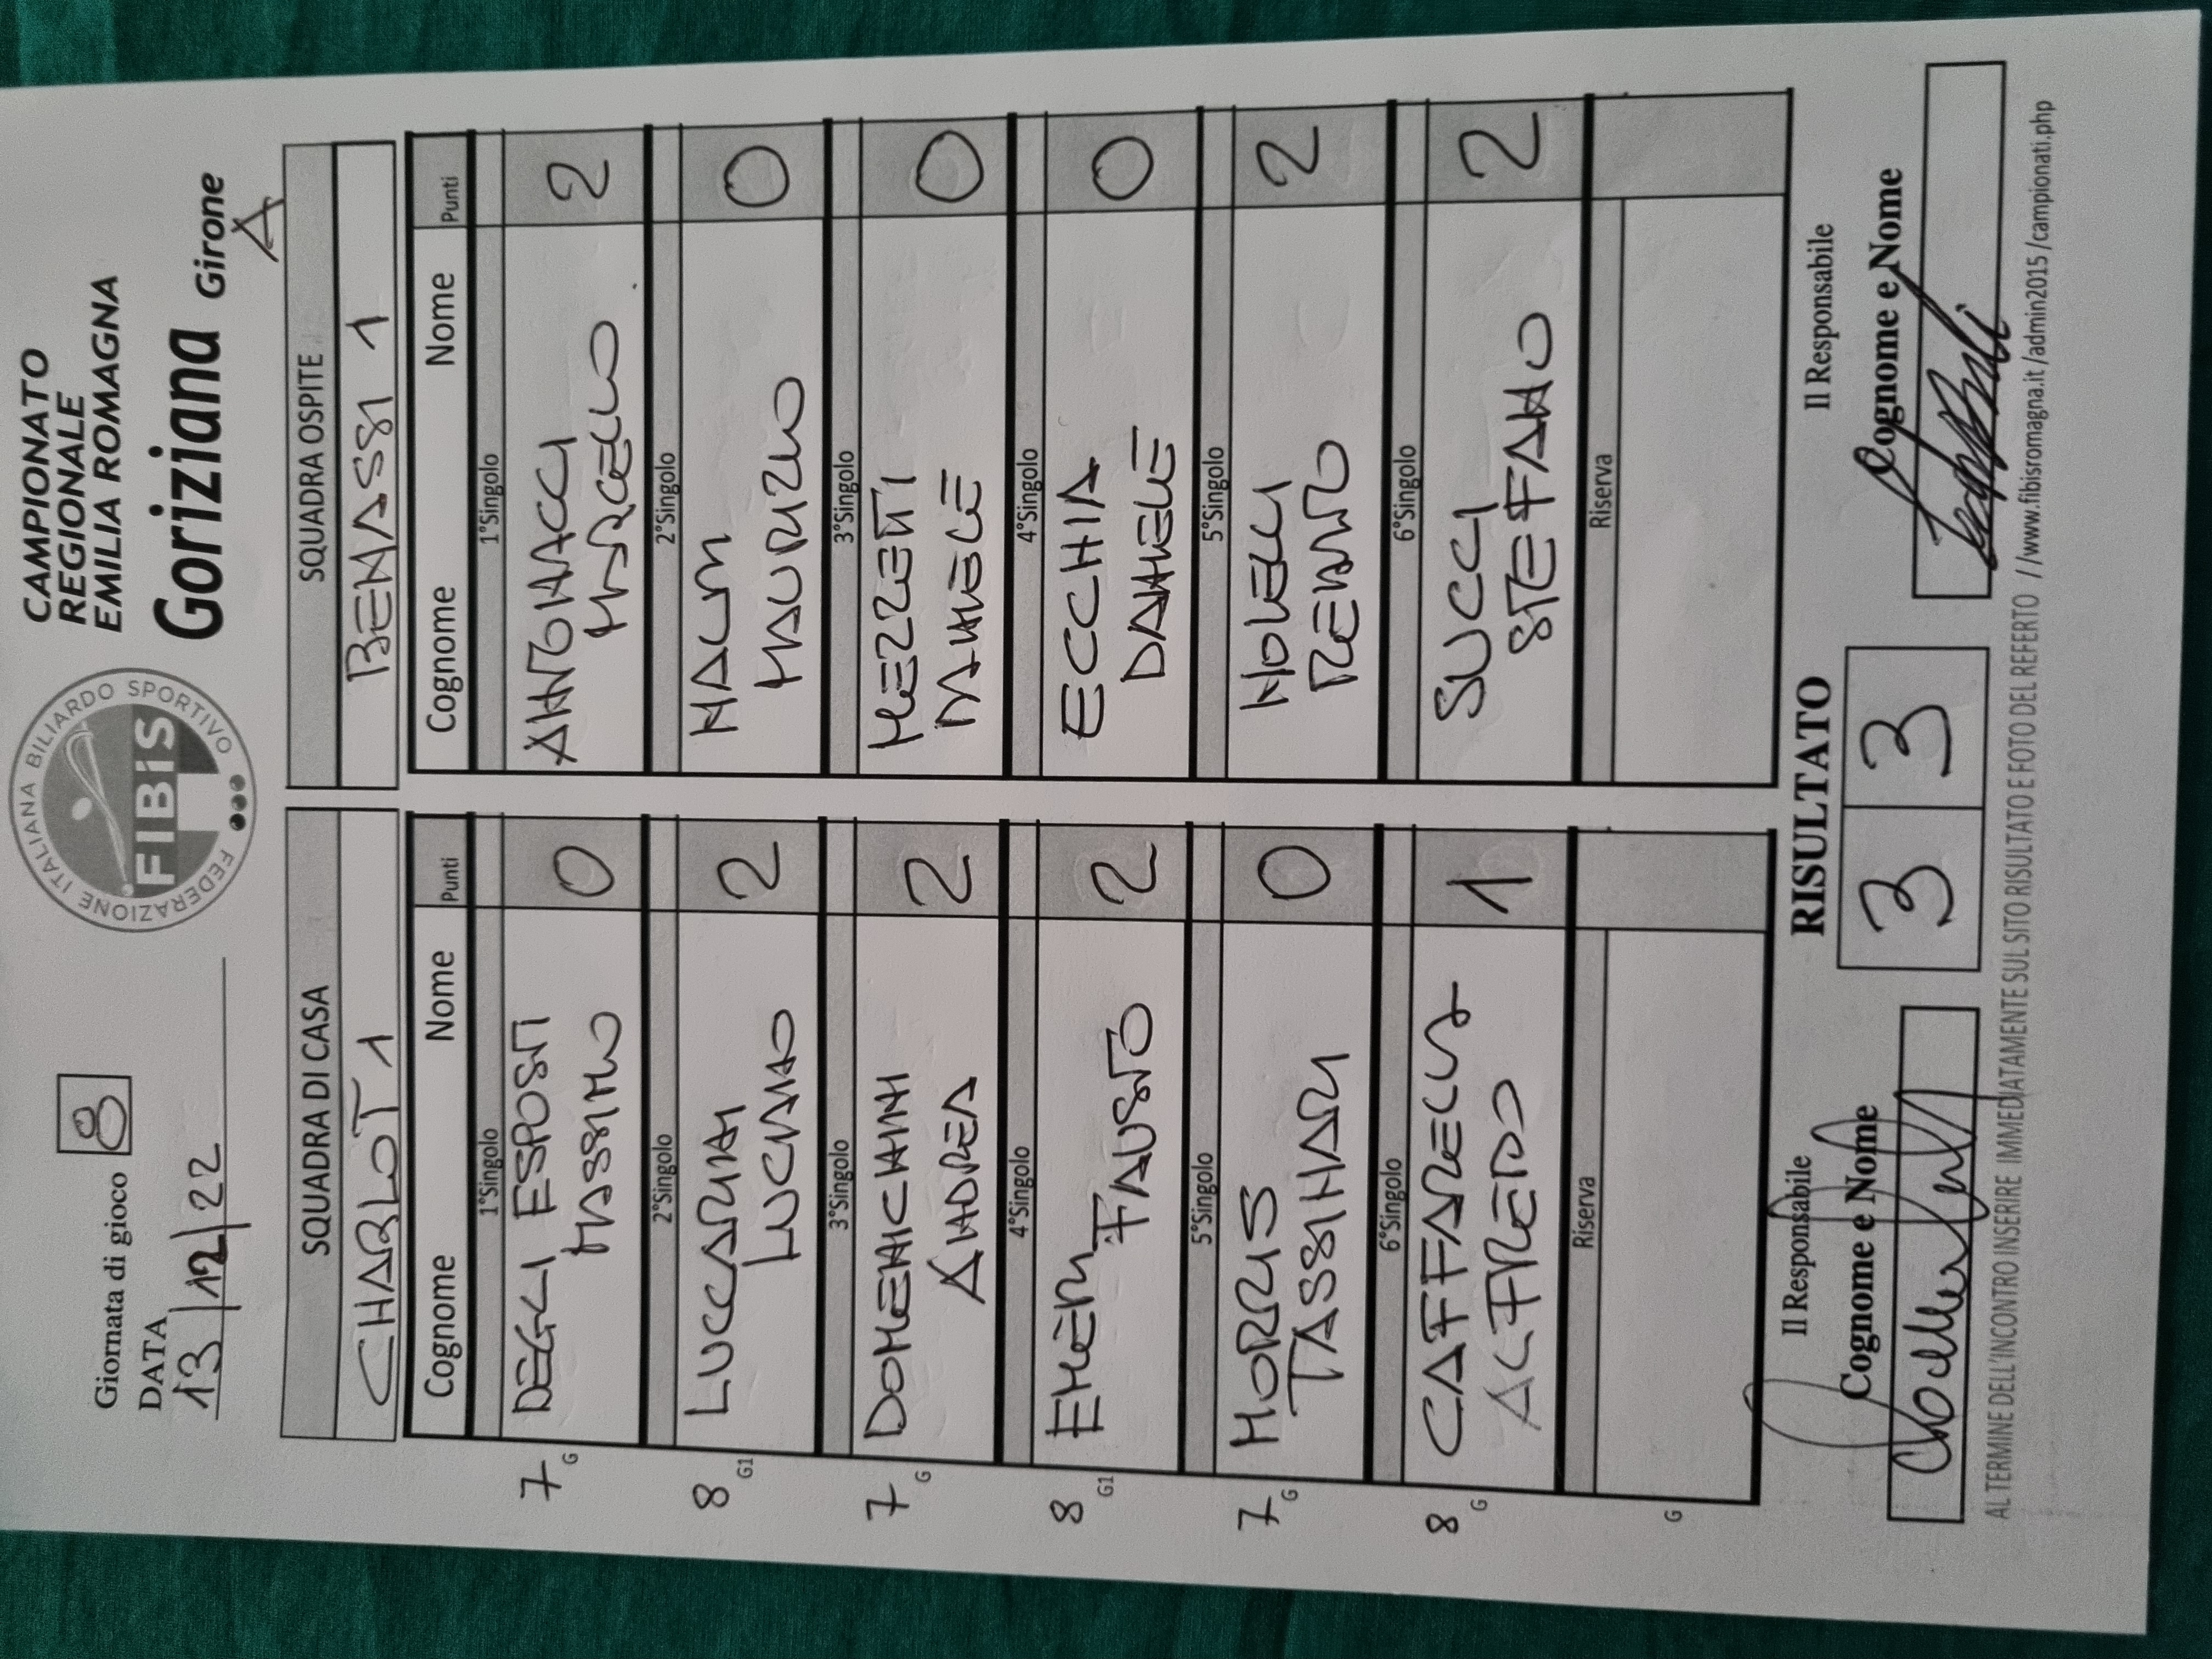 Giornata di gioco 8
DATA
13/12/22
FEDERAZIONE ITALIANA BILIARDO SPORTIVO
FIBIS
CAMPIONATO
REGIONALE
EMILIA ROMAGNA
Goriziana Girone
A
SQUADRA DI CASA SQUADRA OSPITE
CHARLOT 1 BENASSI 1
Cognome Nome Punti Cognome Nome Punti
1°Singolo 1°Singolo
7 G DEGLI ESPOSTI 0 ANTONACCI 2
MASSIMO MARCELLO
2°Singolo 2°Singolo
8 G1 LUCCARINI 2 MALIN 0
LUCIANO MAURIZIO
3°Singolo 3°Singolo
7 G DOMENICHINI 2 MEZZETTI 0
ANDREA DANIELE
4°Singolo 4°Singolo
8 G1 EMERI 2 ECCHIA 0
FAUSTO DANIELE
5°Singolo 5°Singolo
7 G MORRIS 0 NOVELLI 2
TASSINARI RENATO
6°Singolo 6°Singolo
8 G CAFFARELLI 1 SUCCI 2
ALFREDO STEFANO
Riserva Riserva
G
Il Responsabile RISULTATO Il Responsabile
Cognome e Nome 3 3 Cognome e Nome
AL TERMINE DELL'INCONTRO INSERIRE IMMEDIATAMENTE SUL SITO RISULTATO E FOTO DEL REFERTO //www.fibisromagna.it/admin2015/campionati.php